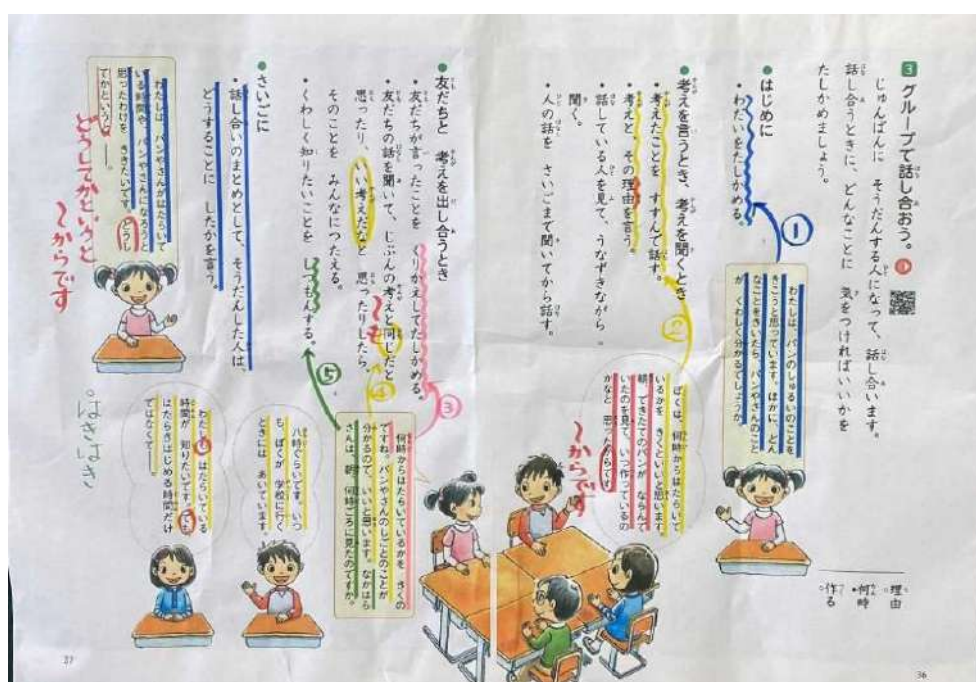 3 グループで話し合おう。
じゅんばんに そうだんする人になって、話し合います。
話し合うときに、どんなことに 気をつければいいかを
たしかめましょう。
●はじめに
・わだいをたしかめる。
①
わたしは、パンのしゅるいのことを
きこうと思っています。ほかに、どん
なことをきいたら、パンやさんのこと
が くわしく分かるでしょうか。
理由
何時
作る
●考えを言うとき、考えを聞くとき
・考えたことを すすんで話す。
・考えと その理由を言う。
・話している人を見て、うなずきながら
聞く。
・人の話を さいごまで聞いてから話す。
②
ぼくは、何時からはたらいて
いるかを きくといいと思います。
朝、できたてのパンが ならんで
いたのを見て、いつ作っているの
かなと 思ったからです。
〜からです
36
●友だちと 考えを出し合うとき
・友だちが言ったことを くりかえしてたしかめる。
・友だちの話を聞いて、じぶんの考えと同じだと
思ったり、いい考えだなと 思ったりしたら、
そのことを みんなにつたえる。
・くわしく知りたいことを しつもんする。
〜も
③
④
⑤
何時からはたらいているかを きくの
ですね。パンやさんのしごとのことが
分かるので、いいと思います。なかはら
さんは、朝 何時ごろに見たのですか。
八時ぐらいです。いつ
も、ぼくが 学校に行く
ときには あいています。
わたしも はたらいている
時間が 知りたいです。でも
はたらきはじめる時間だけ
ではなくて
●さいごに
・話し合いのまとめとして、そうだんした人は、
どうすることに したかを言う。
わたしは、パンやさんがはたらいて
いる時間や、パンやさんになろうと
思ったわけを、ききたいです。どうし
てかというと ──。
どうしてかというと
〜からです
はきはき
37